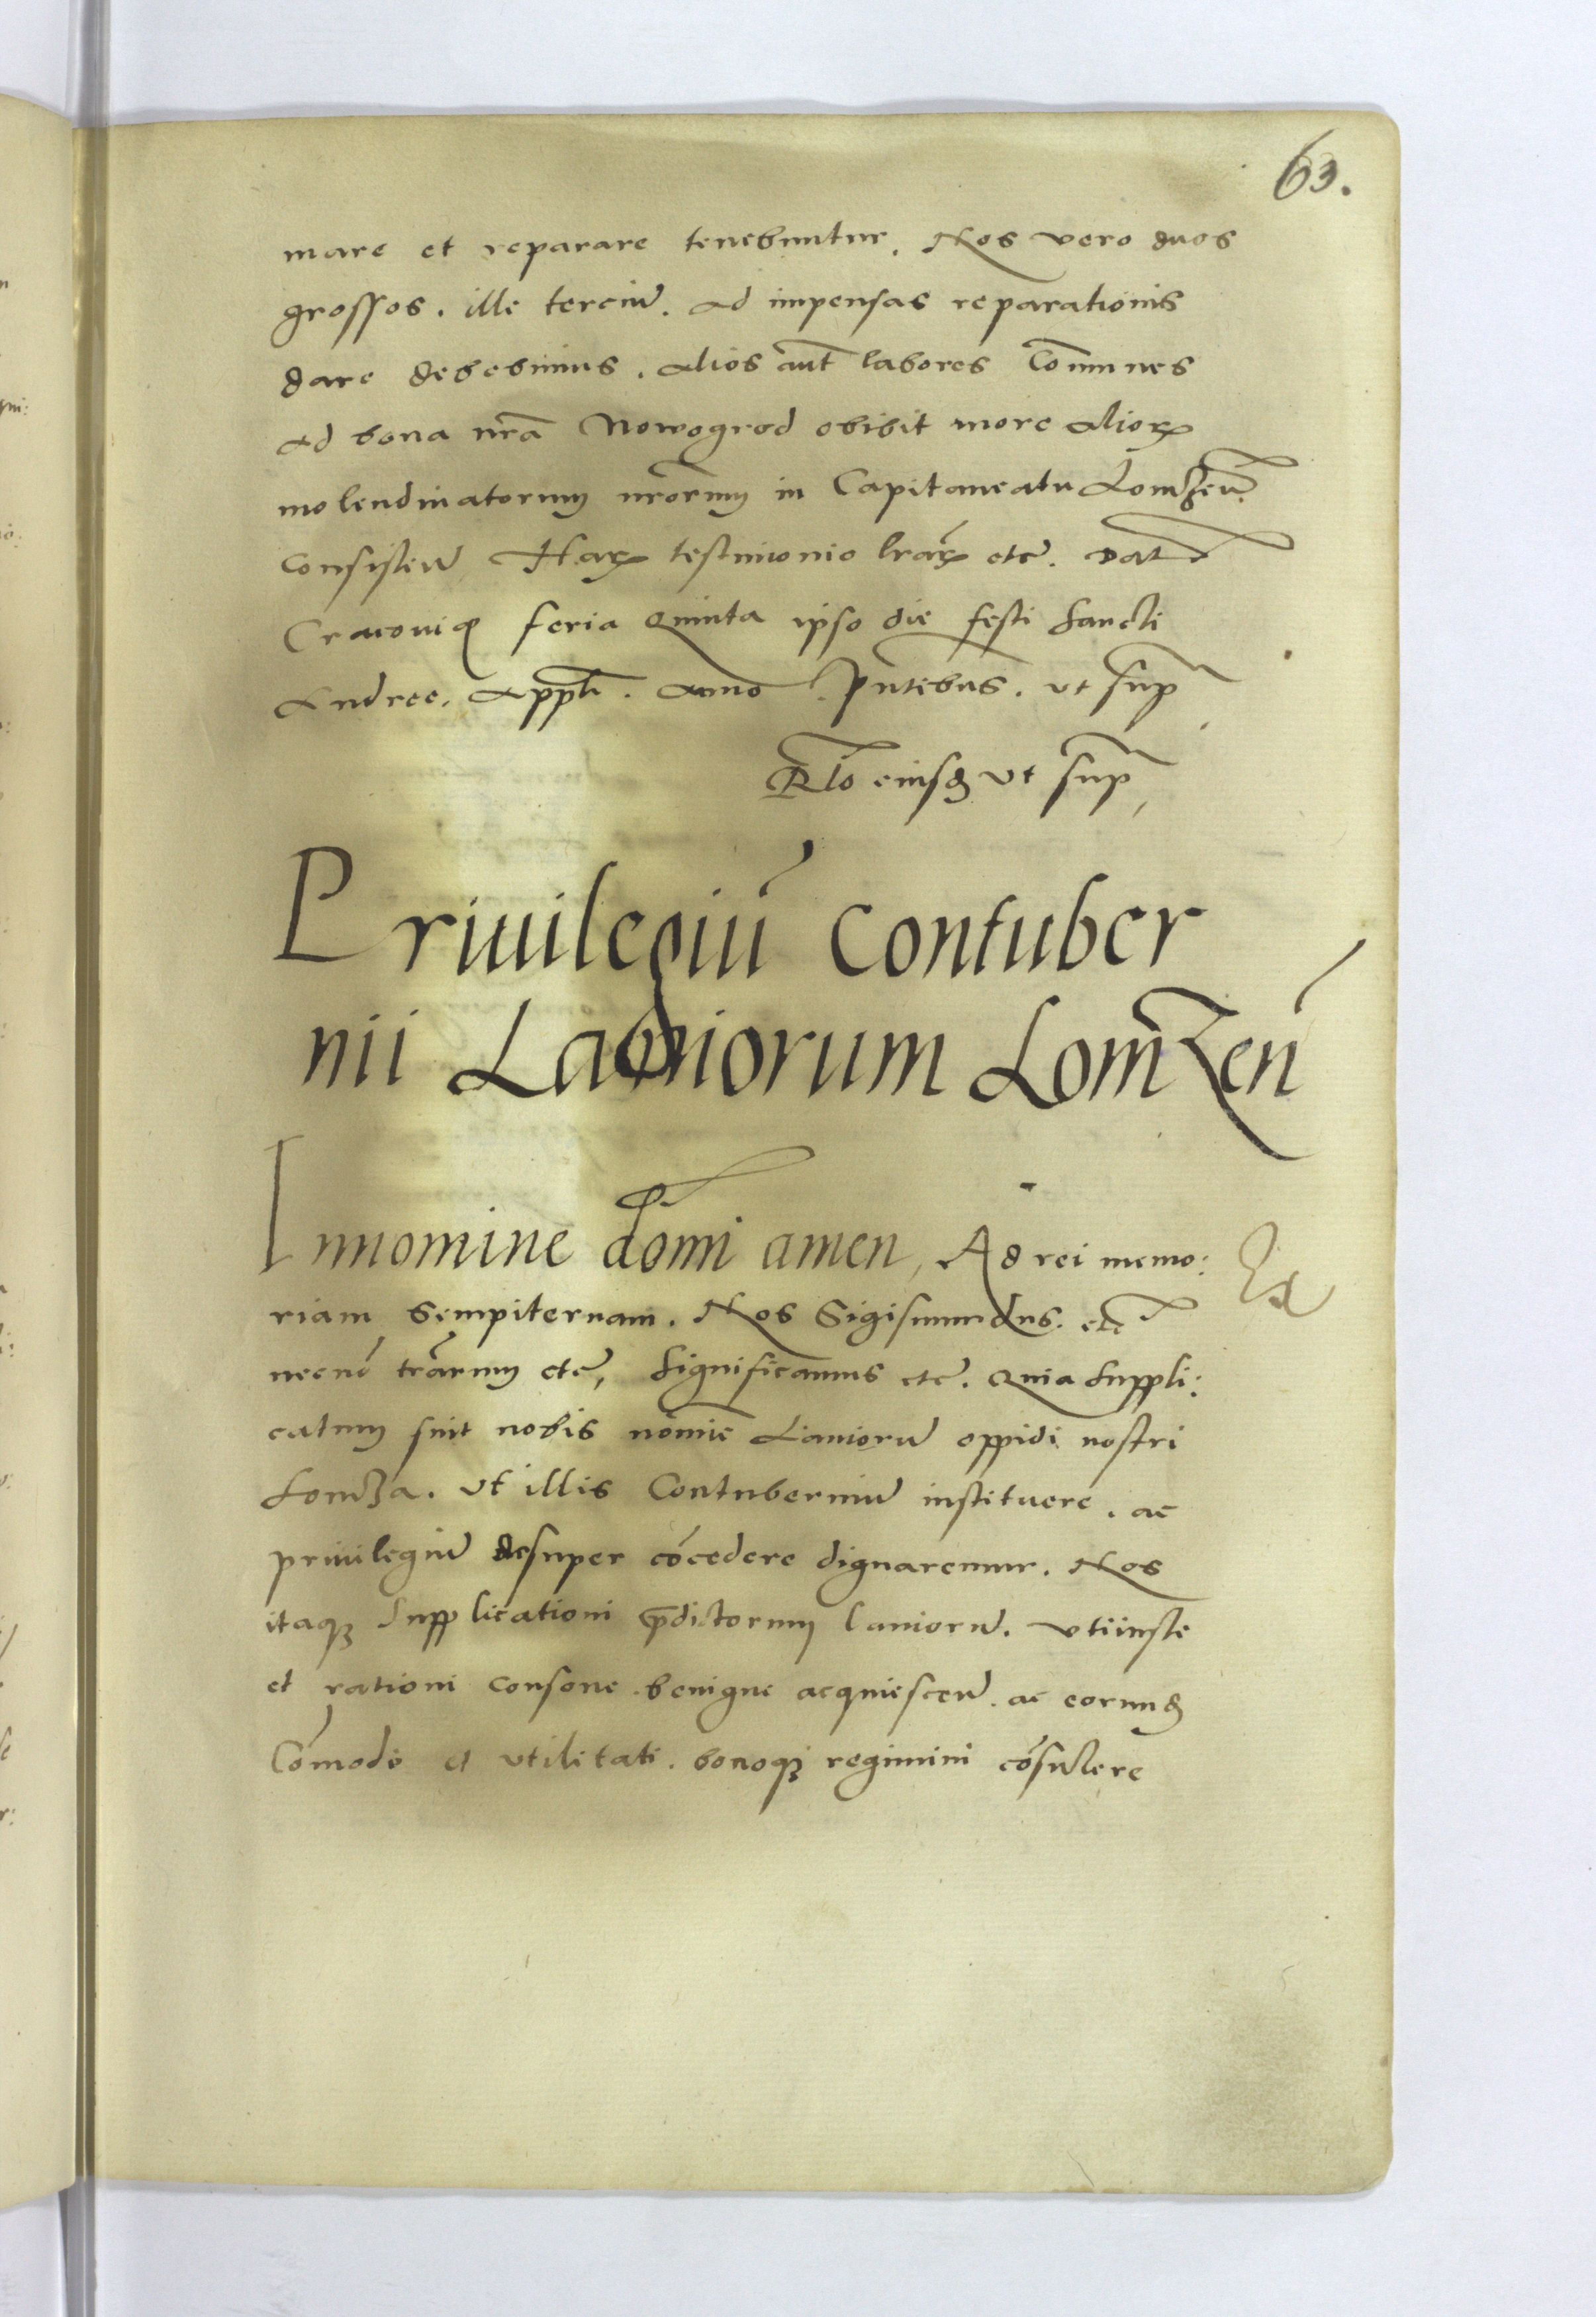 63.
mare et reparare tenebuntur. Nos vero duos
grossos. ille terciu̅. ad impensas reparationis
dare debebimus. alios aut̅ labores Co̅munes
ad bona nr̅a Nowogrod obibit more alioꝝ
molendinatorum nr̅orum in Capitaneatu Lomzen̅.
Consisten̅ Haꝝ testimonio lr̅aꝝ etc̅. Dat
Cracouię feria Quinta ipso die festi Sancti
Andree. Appli̅. anno Pn̅tibus. ut sup̅
Rl̅o eiusd̅ ut sup̅
Priuilegiu̅ Contuber
nii Laniorum Lomzen̅
Innomine do̅ni amen, Ad rei memo:
riam Sempiternam. Nos Sigismundus. etc
necno̅ tr̅arum etc̅, Significamus etc̅. Quia Suppli:
catum fuit nobis no̅mie̅ Lanioru̅ oppidi nostri
Lomza. Vt illis Contuberniu̅ instituere. ac
priuilegiu̅ desuper co̅cedere dignaremur. Nos
itaqꝫ Supplicationi p̅dictorum lanioru̅. vti iuste
et rationi consone benigne acquiescen̅. ac eorund̅
Co̅modo et vtilitati. bonoqꝫ regimini co̅sulere